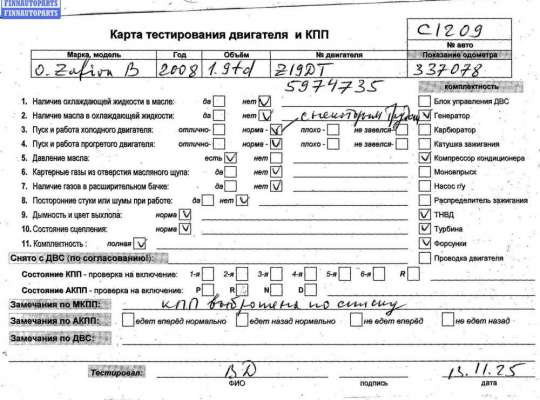 FINNAUTOPARTS
FINNAUTOPARTS
Карта тестирования двигателя и КПП
C1209
№ авто
Марка, модель Год Объём № двигателя Показание одометра
O. Zafira B 2008 1.9td Z19DT 337078
5974735
комплектность
1. Наличие охлаждающей жидкости в масле: да нет
2. Наличие масла в охлаждающей жидкости: да нет
3. Пуск и работа холодного двигателя: отлично- норма - плохо - не завелся-
4. Пуск и работа прогретого двигателя: отлично- норма - плохо - не завелся-
5. Давление масла: есть нет
6. Картерные газы из отверстия масляного щупа: да нет
7. Наличие газов в расширительном бачке: да нет
8. Посторонние стуки или шумы при работе: да нет
9. Дымность и цвет выхлопа: норма
10. Состояние сцепления: норма
11. Комплектность : полная
Блок управления ДВС
Генератор
Карбюратор
Катушка зажигания
Компрессор кондиционера
Моновпрыск
Насос г/у
Распределитель зажигания
ТНВД
Турбина
Форсунки
Проводка двигателя
Снято с ДВС (по согласованию!):
Состояние КПП - проверка на включение: 1-я 2-я 3-я 4-я 5-я 6-я R
Состояние АКПП - проверка на включение: P R N D
Замечания по МКПП: КПП выбрана по списку
Замечания по АКПП: едет вперёд нормально едет назад нормально не едет вперёд не едет назад
Замечания по ДВС:
Тестировал: ВД 13.11.25
ФИО подпись дата